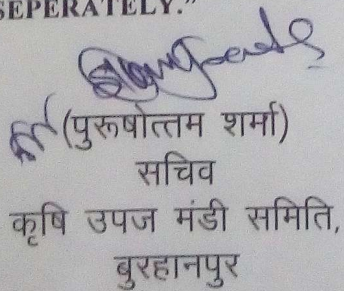 SEPERATELY."
(पुरूषोत्तम शर्मा)
सचिव
कृषि उपज मंडी समिति,
बुरहानपुर